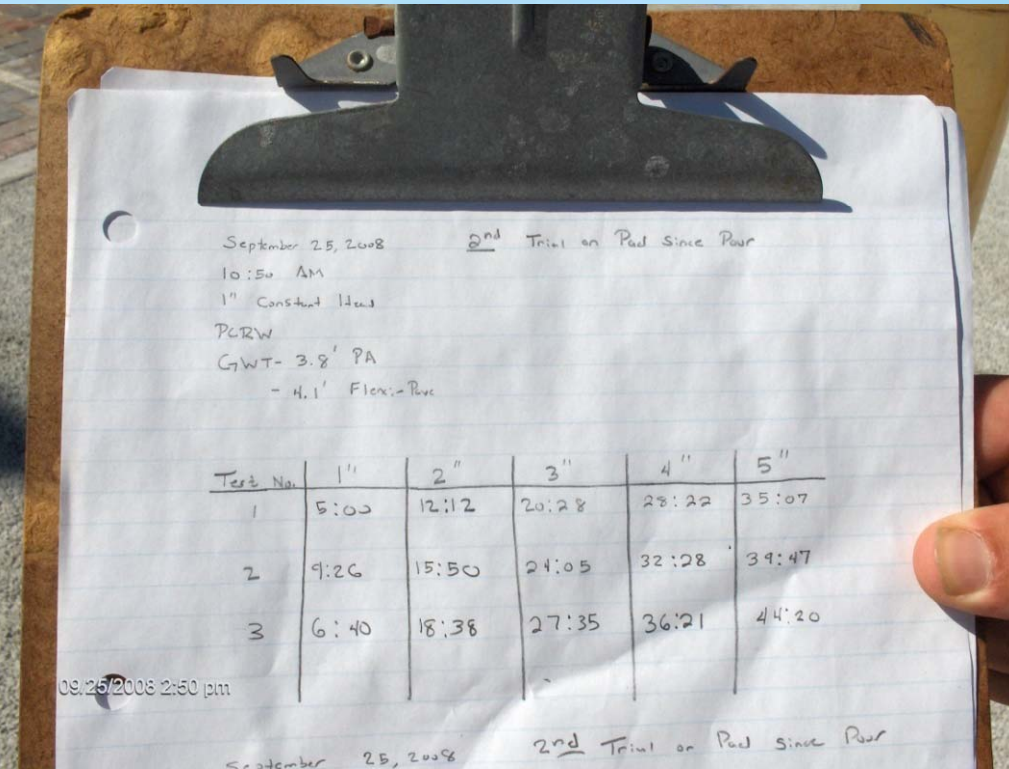 September 25, 2008 2nd Trial on Pad Since Pour
10:50 AM
1" Constant Head
PCRW
GWT- 3.8' PA
- 4.1' Flexi-Pave
Test No. 1" 2" 3" 4" 5"
1 5:00 12:12 20:28 28:22 35:07
2 9:26 15:50 24:05 32:28 39:47
3 6:40 18:38 27:35 36:21 44:20
09.25/2008 2:50 pm
September 25, 2008 2nd Trial on Pad Since Pour